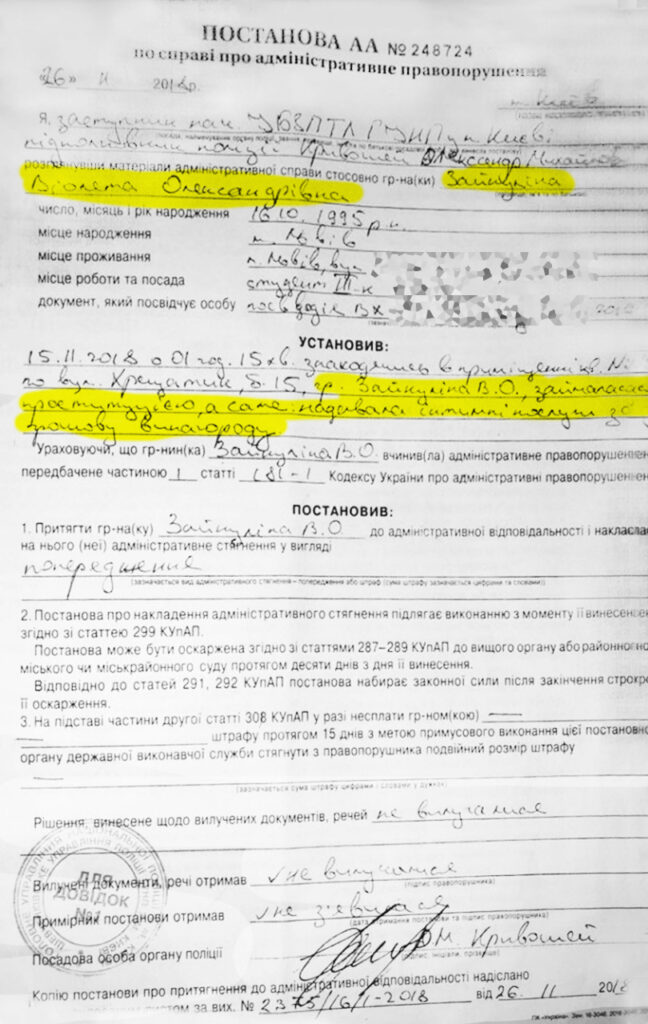 ПОСТАНОВА АА №248724
по справі про адміністративне правопорушення
"26" 11 2018р. м. Київ
Я, заступник нач. УБЗПТЛ ГУНП у м. Києві
підполковник поліції Кривошей Олександр
розглянувши матеріали адміністративної справи стосовно гр-на(ки) Зайнуліна
Віолета Олександрівна
число, місяць і рік народження 16.10.1995 р.н.
місце народження м. Львів
місце проживання м. Львів, вул.
місце роботи та посада студент III-к
документ, який посвідчує особу посв. водія ВХ
УСТАНОВИВ:
15.11.2018 о 01 год. 15 хв. знаходячись в приміщенні кв. №
по вул. Хрещатик, б. 15, гр. Зайнуліна В.О., займалася
проституцією, а саме: надавала інтимні послуги за
грошову винагороду
Ураховуючи, що гр-нин(ка) Зайнуліна В.О. вчинив(ла) адміністративне правопорушення
передбачене частиною 1 статті 181-1 Кодексу України про адміністративні правопорушен
ПОСТАНОВИВ:
1. Притягти гр-на(ку) Зайнуліна В.О. до адміністративної відповідальності і накласти
на нього (неї) адміністративне стягнення у вигляді
попередження
(зазначається вид адміністративного стягнення – попередження або штраф (сума штрафу зазначається цифрами та словами))
2. Постанова про накладення адміністративного стягнення підлягає виконанню з моменту її винесен
згідно зі статтею 299 КУпАП.
Постанова може бути оскаржена згідно зі статтями 287–289 КУпАП до вищого органу або районног
міського чи міськрайонного суду протягом десяти днів з дня її винесення.
Відповідно до статей 291, 292 КУпАП постанова набирає законної сили після закінчення строк
її оскарження.
3. На підставі частини другої статті 308 КУпАП у разі несплати гр-ном(кою)
штрафу протягом 15 днів з метою примусового виконання цієї постанов
органу державної виконавчої служби стягнути з правопорушника подвійний розмір штрафу
(зазначається сума штрафу цифрами і словами у дужках)
Рішення, винесене щодо вилучених документів, речей не вилучалися
Вилучені документи, речі отримав не вилучалися
(підпис правопорушника)
Примірник постанови отримав не з'явилася
(дата отримання постанови та підпис правопорушника)
Посадова особа органу поліції О.М. Кривошей
(підпис, ініціали, прізвище)
Копію постанови про притягнення до адміністративної відповідальності надіслано
листом за вих. № 2375/16/1-2018 від 26. 11 2018
ДЛЯ
ДОВІДОК
№1